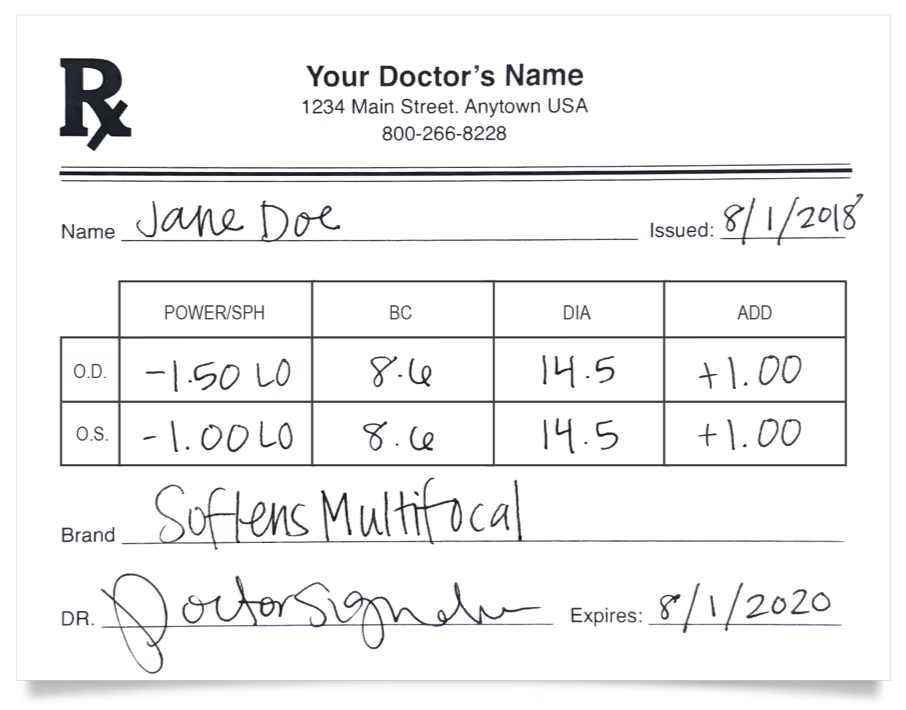 Rx
Your Doctor's Name
1234 Main Street. Anytown USA
800-266-8228
Name Jane Doe Issued: 8/1/2018
POWER/SPH BC DIA ADD
O.D. -1.50 LO 8.6 14.5 +1.00
O.S. -1.00 LO 8.6 14.5 +1.00
Brand Soflens Multifocal
DR. Doctor Signature Expires: 8/1/2020